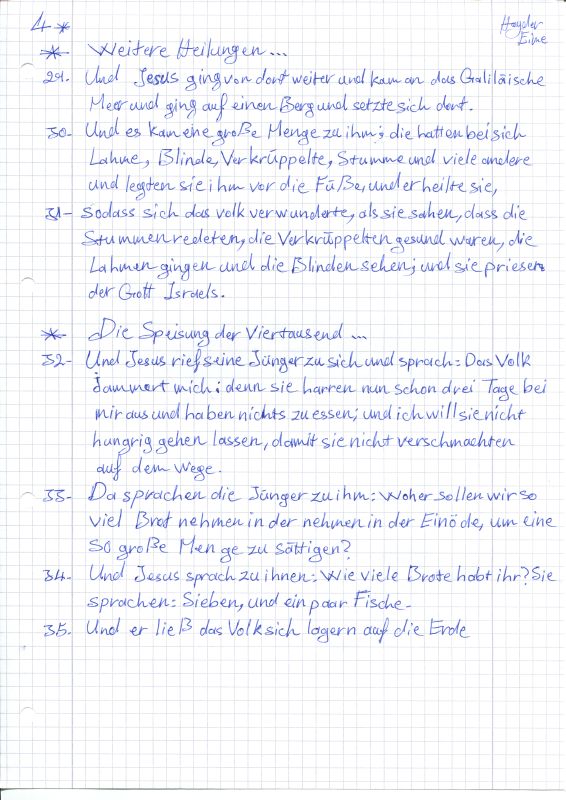 4 *
Hayder
Eime
* Weitere Heilungen...
29. Und Jesus ging von dort weiter und kam an das Galiläische
Meer und ging auf einen Berg und setzte sich dort.
30- Und es kam eine große Menge zu ihm; die hatten bei sich
Lahme, Blinde, Verkrüppelte, Stumme und viele andere
und legten sie ihm vor die Füße, und er heilte sie,
31- sodass sich das volk verwunderte, als sie sahen, dass die
Stummen redeten, die Verkrüppelten gesund waren, die
Lahmen gingen und die Blinden sehen; und sie priesen
der Gott Israels.
* Die Speisung der Viertausend...
32- Und Jesus rief seine Jünger zu sich und sprach: Das Volk
jammert mich; denn sie harren nun schon drei Tage bei
mir aus und haben nichts zu essen; und ich will sie nicht
hungrig gehen lassen, damit sie nicht verschmachten
auf dem Wege.
33- Da sprachen die Jünger zu ihm: Woher sollen wir so
viel Brot nehmen in der nehmen in der Einöde, um eine
so große Menge zu sättigen?
34- Und Jesus sprach zu ihnen: Wie viele Brote habt ihr? Sie
sprachen: Sieben, und ein paar Fische.
35. Und er ließ das Volk sich lagern auf die Erde